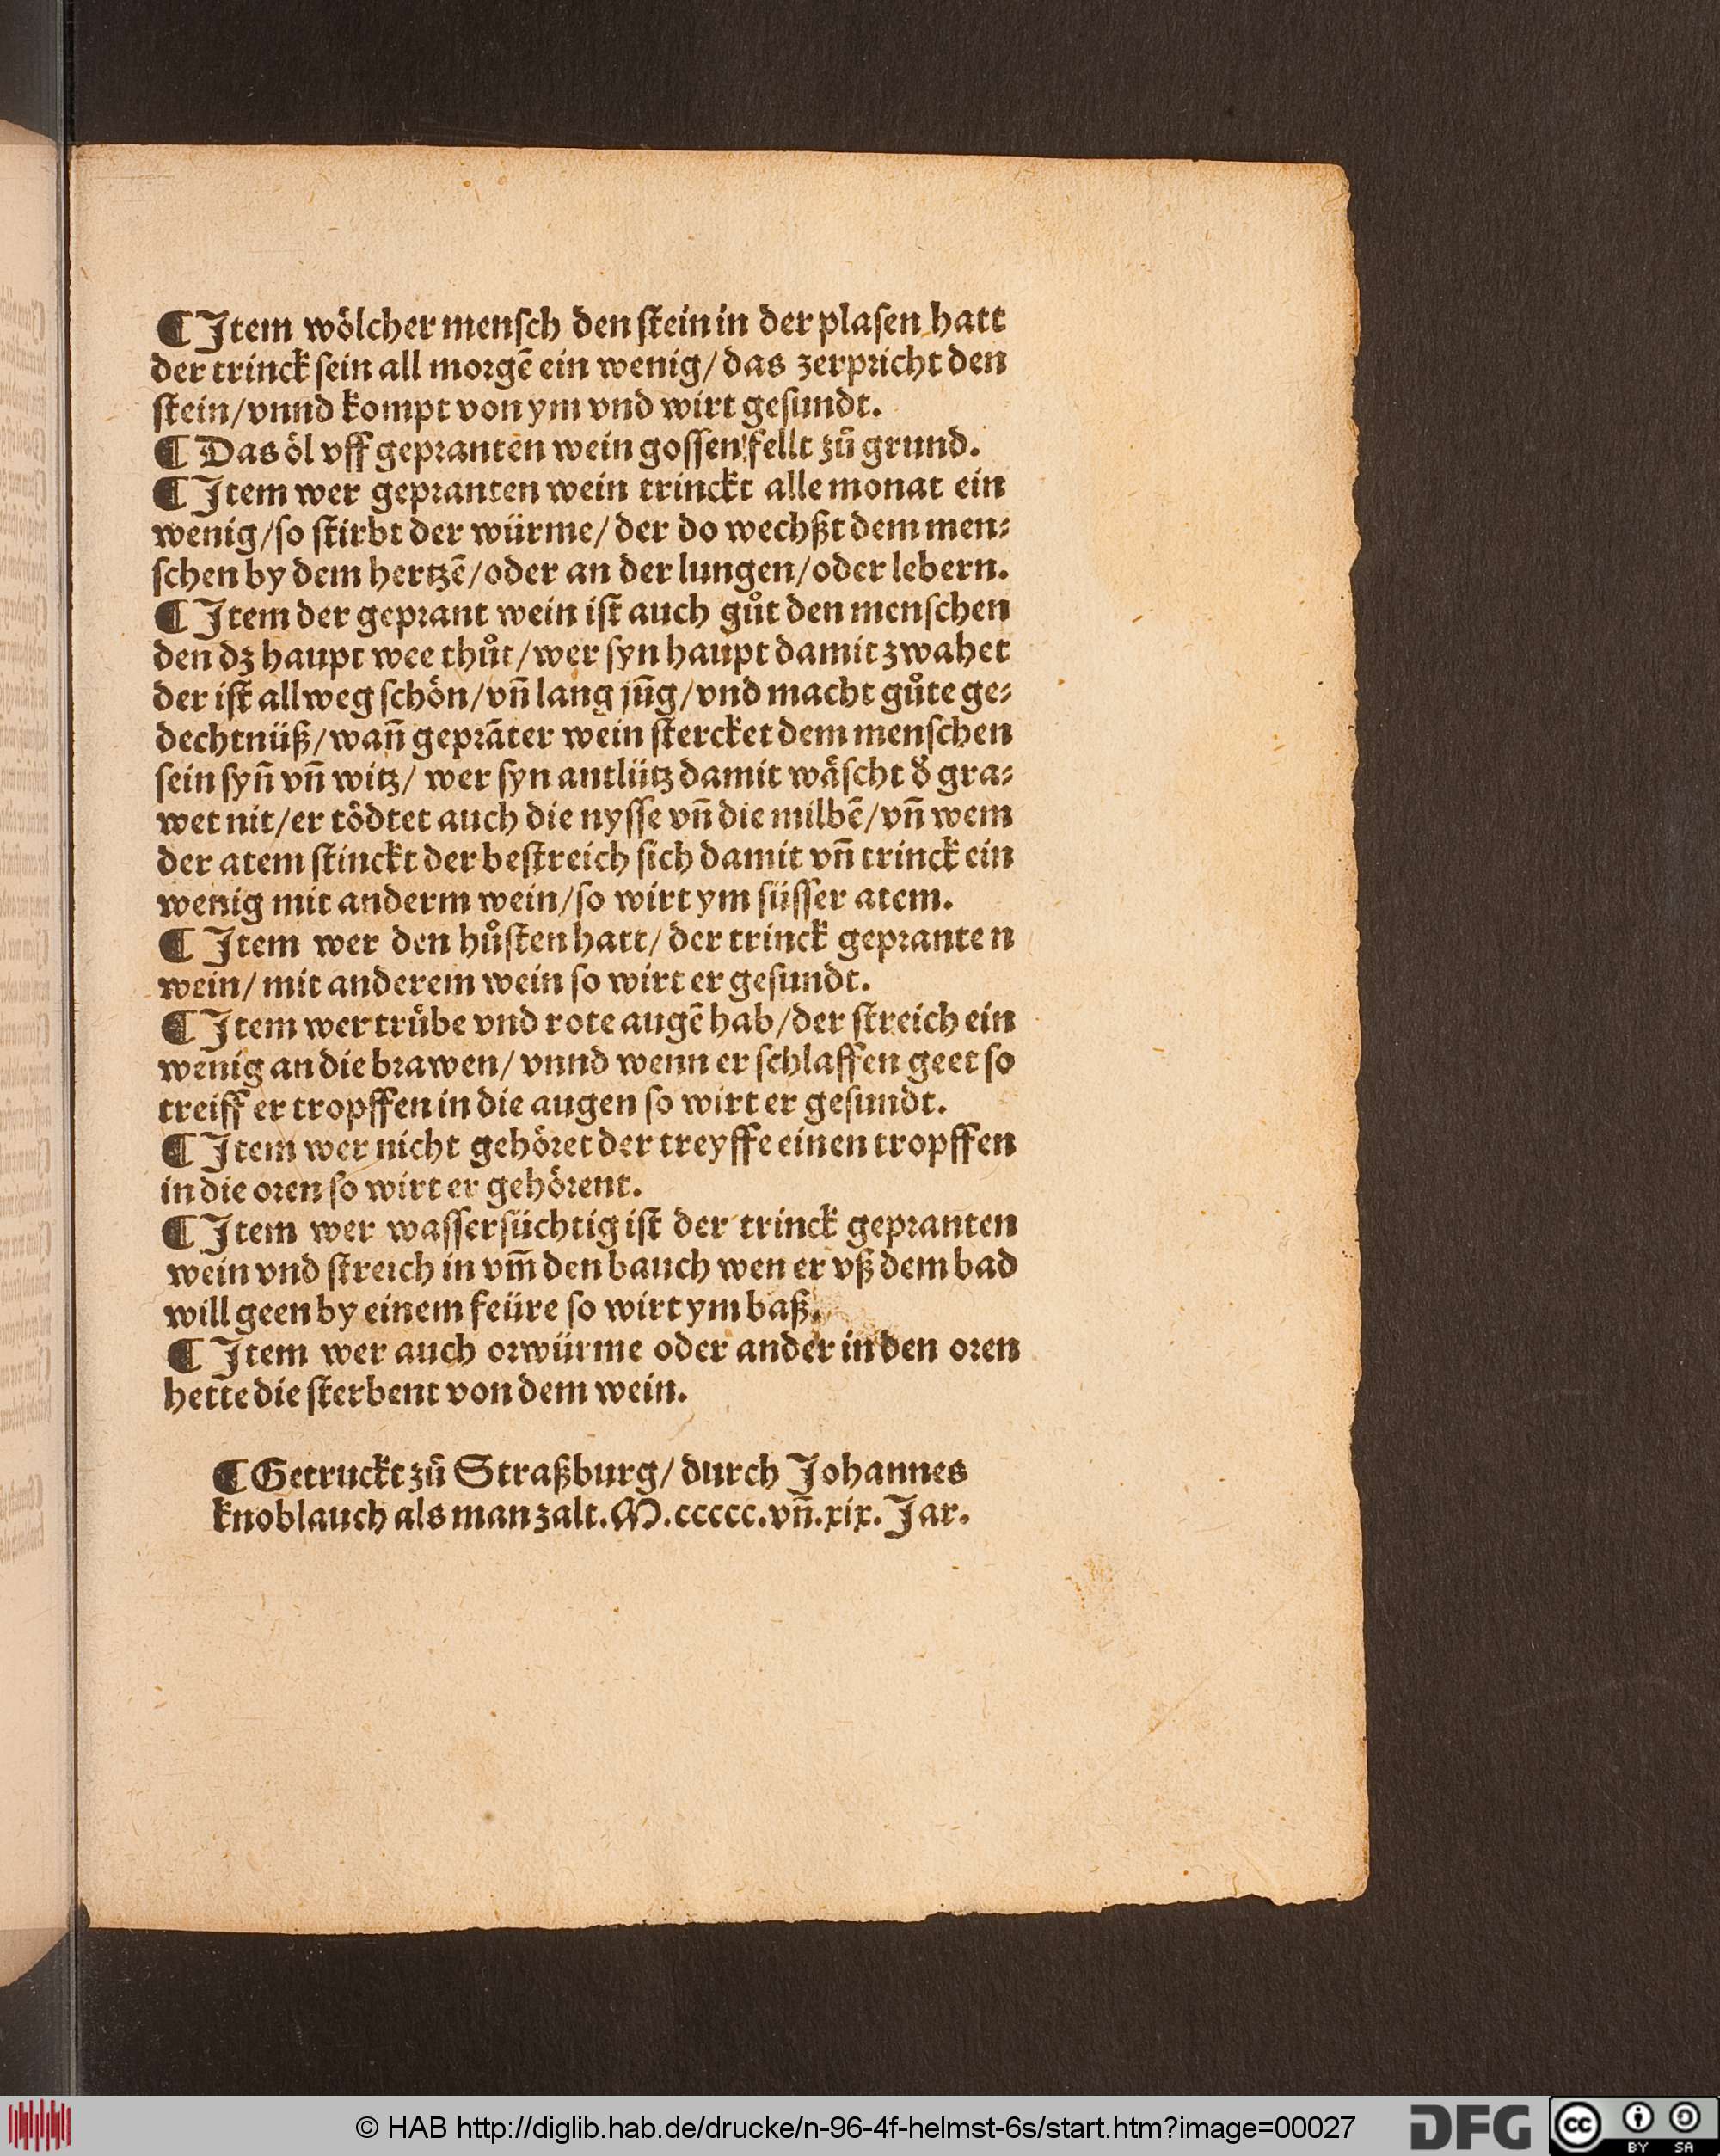 ¶ Item wölcher mensch den stein in der plasen hatt
der trinck sein all morgẽ ein wenig/das zerpricht den
stein/vnnd kompt von ym vnd wirt gesundt.
¶ Das öl vff gepranten wein gossen fellt zů grund.
¶ Item wer gepranten wein trinckt alle monat ein
wenig/so stirbt der würme/der do wechßt dem men⸗
schen by dem hertzẽ/oder an der lungen/oder lebern.
¶ Item der geprant wein ist auch gůt den menschen
den dz haupt wee thůt/wer syn haupt damit zwahet
der ist allweg schön/vñ lang jũg/vnd macht gůte ge⸗
dechtnüß/wañ geprãter wein stercket dem menschen
sein syñ vñ witz/ wer syn antlütz damit wäscht d̕ gra⸗
wet nit/er tödtet auch die nysse vñ die milbẽ/vñ wem
der atem stinckt der bestreich sich damit vñ trinck ein
wenig mit anderm wein/so wirt ym süsser atem.
¶ Item wer den hůsten hatt/der trinck gepranten
wein/mit anderem wein so wirt er gesundt.
¶ Item wer trübe vnd rote augẽ hab/der streich ein
wenig an die brawen/vnnd wenn er schlaffen geet so
treiff er tropffen in die augen so wirt er gesundt.
¶ Item wer nicht gehöret der treyffe einen tropffen
in die oren so wirt er gehörent.
¶ Item wer wassersüchtig ist der trinck gepranten
wein vnd streich in vm̃ den bauch wen er vß dem bad
will geen by einem feüre so wirt ym baß.
¶ Item wer auch orwürme oder ander in den oren
hette die sterbent von dem wein.
¶ Getruckt zů Straßburg/durch Johannes
knoblauch als man zalt.M.ccccc.vñ.xix. Jar.
© HAB http://diglib.hab.de/drucke/n-96-4f-helmst-6s/start.htm?image=00027
DFG
cc BY SA